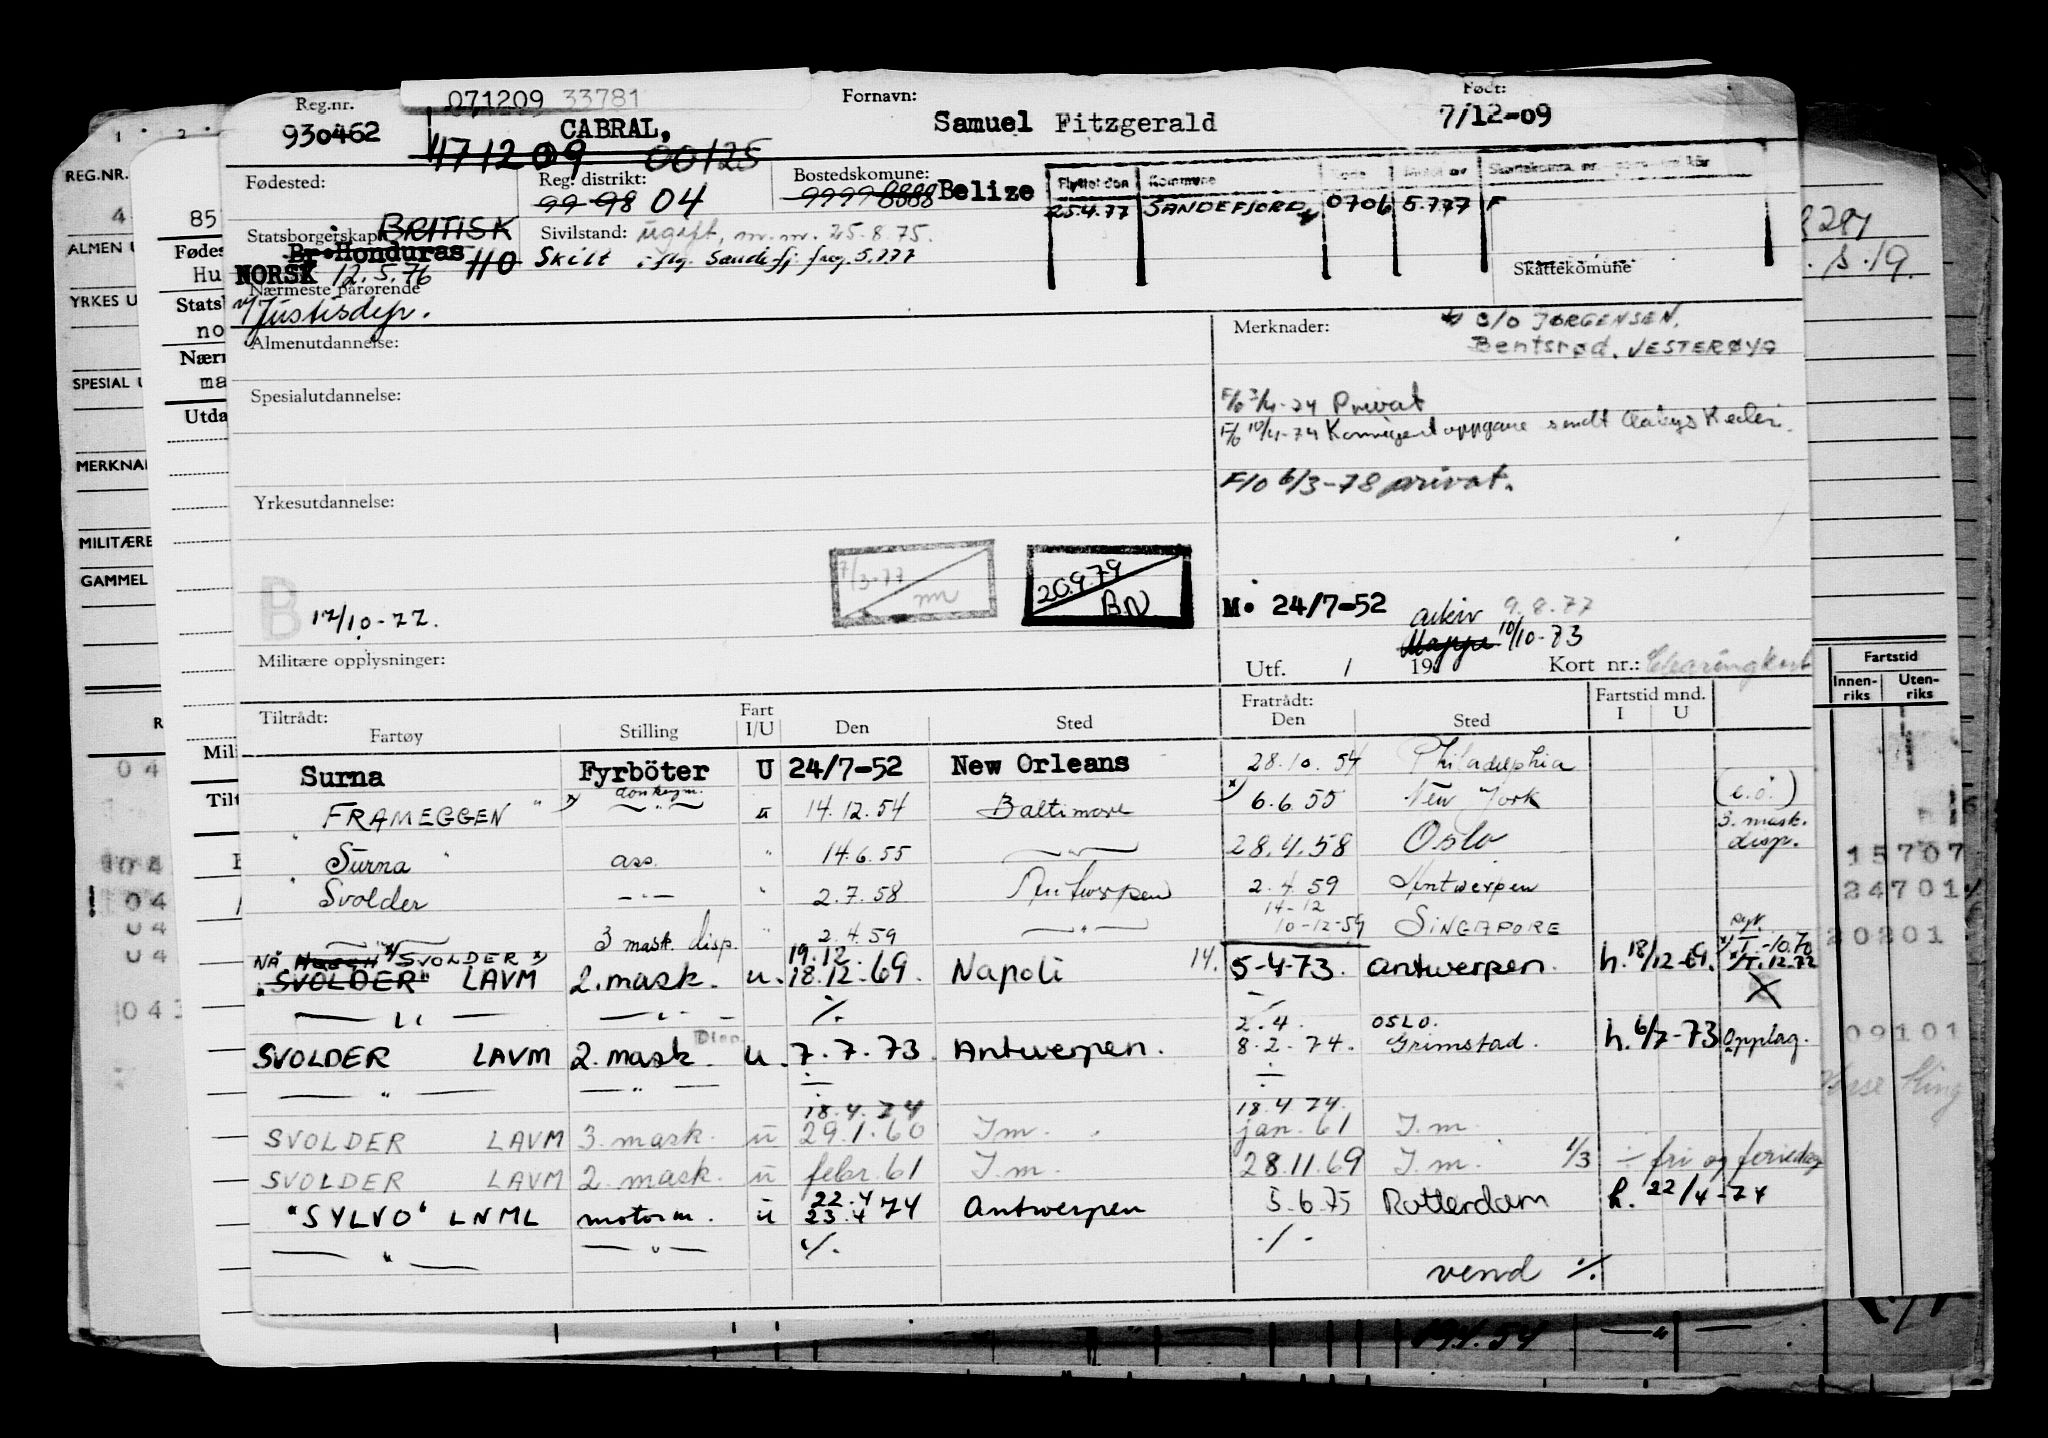 Reg.nr. 071209 33781 Fornavn: Født:
930462 CABRAL, Samuel Fitzgerald 7/12-09
471209 00125
Fødested: Reg. distrikt: Bostedskomune: Belize
99 98 04 9999 8888
Flyttet den Kommune
25.4.77 SANDEFJORD 0706 5.777 F
Statsborgerskap: BRITISK Sivilstand: ugift, m.m. 25.8.75.
Br.Honduras HO Skilt iflg. Sandefj. freg. 5.777
NORSK 12.5.76 Skattekomune
Nærmeste pårørende
v/Justisdep.
Almenutdannelse: Merknader: c/o JØRGENSEN,
Bentsrød, VESTERØYA
Spesialutdannelse:
F/o 3/4-74 Privat
F/o 10/4-74 sendt Rederi.
F/o 6/3-78 privat.
Yrkesutdannelse:
7/3-77 20.9.79
BN
B M. 24/7-52 arkiv 9.8.77
17/10-77. Mappe 10/10-73
Militære opplysninger: Utf. / 19 Kort nr.: Clearingkort
Tiltrådt: Fart Fratrådt: Fartstid mnd.
Fartøy Stilling I/U Den Sted Den Sted I U
Surna Fyrböter U 24/7-52 New Orleans 28.10.54 Philadelphia
FRAMEGGEN " donkeym. u 14.12.54 Baltimore 6.6.55 New York (e.o.)
Surna " ass. " 14.6.55 — " — 28.4.58 Oslo 3. mask. disp.
Svolder — " — " 2.7.58 Antwerpen 2.4.59 Antwerpen
— " — 3 mask. disp. " 2.4.59 — " — 14-12 10-12-59 SINGAPORE
NÅ SVOLDER 19.12.
"SVOLDER" LAVM 2. mask. u. 18.12.69. Napoli 14. 5-4-73. Antwerpen. h. 18/12-69. T.-10.70 T.12.72
— " — — " — %. 2.4. OSLO.
SVOLDER LAVM 2. mask Disp. u. 7.7.73. Antwerpen. 8.2-74. Grimstad. h. 6/7-73 Opplag.
— " — — " — 18.4.74 18.4.74.
SVOLDER LAVM 3. mask. u 29.1.60 I.m. jan. 61 I.m.
SVOLDER LAVM 2. mask. u febr. 61 I.m. 28.11.69 I.m. 1/3 ÷ fri og feriedag
"SYLVO" LNML motorm. u 22.4 23.4 74 Antwerpen 5.6.75 Rotterdam h. 22/4-74
— " — — " — %. -/-
vend %.
REG.NR.
ALMEN U
YRKES U
SPESIAL U
MERKNA
MILITÆRE
GAMMEL
85
Fødes
Hu
Stats
no
Nærm
ma
Utda
Mili
Tilt
Fartstid
Innen-riks Uten-riks
15707
24701
20201
09101